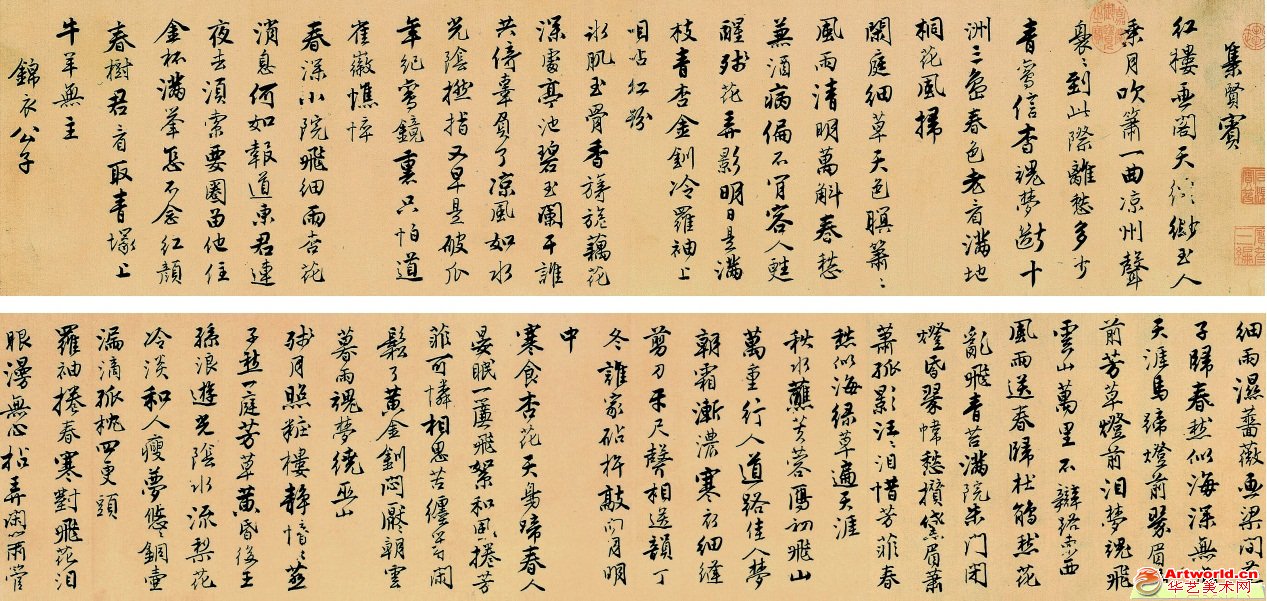 集賢賓
紅樓畫閣天縹緲玉人
乘月吹簫一曲涼州聲
裊〻到此際離愁多少
青鸞信杳魂夢斷十
洲三島春色老看滿地
桐花風掃
閑庭細草天色暝簫〻
風雨清明萬斛春愁
兼酒病偏不肯容人甦
醒殘花弄影明日是滿
枝青杏金釧冷羅袖上
沾紅粉
冰肌玉骨香旖旎藕花
深處亭池碧玉闌干誰
共倚辜負了涼風如水
光陰撚指又早是破瓜
年紀鸞鏡裏只怕道
崔徽憔悴
春深小院飛細雨杏花
消息何如報道東君連
夜去須索要圈留他住
金杯滿舉怎不念紅顏
春樹君看取青塚上
牛羊無主
錦衣公子
細雨濕薔薇畫梁間燕
子歸春愁似海深無
天涯馬蹄燈前翠眉
前芳草燈前泪夢魂飛
雲山萬里不辯路東西
風雨送春歸杜鵑愁花
亂飛青苔滿院朱門閉
燈昏翠幃愁攢黛眉蕭
蕭孤影汪〻泪惜芳菲春
愁似海綠草遍天涯
秋水蘸芙蓉鴈初飛山
萬重行人道路佳人夢
朝霜漸濃寒衣細縫
剪刀牙尺聲相送韻丁
冬誰家砧杵敲向月明
中
寒食杏花天鳥啼春人
晏眠一簾飛絮和風捲芳
菲可憐相思苦纏等閑
鬆了黃金釧悶厭朝雲
暮雨魂夢繞巫山
殘月照粧樓靜愔〻燕
子愁一庭芳草黃昏後王
孫浪遊光陰水流梨花
冷淡和人瘦夢悠〻銅壺
漏滴孤枕四更頭
羅袖捲春寒對飛花泪
眼漫無心拈弄閑簫管
Artworld.cn
华艺美术网